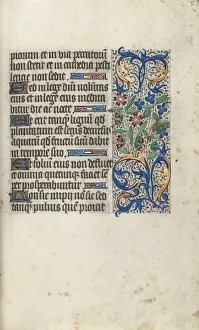 piorum et in via peccatorum
non stetit et in cathedra pesti
lencie non sedit
Sed in lege dñi voluntas
eius et in lege eius medita
bitur die ac nocte
Et erit tanq̃ lignũ qd
plantatum est secus decursus
aquarũ qd fructũ suũ dabit
in tempore suo
Et foliũ eius non defluet
et omnia quecunq̃ faciet sẽ
per prosperabuntur
Non sic impii nõ sic sed
tanq̃ pulvis quẽ proicit